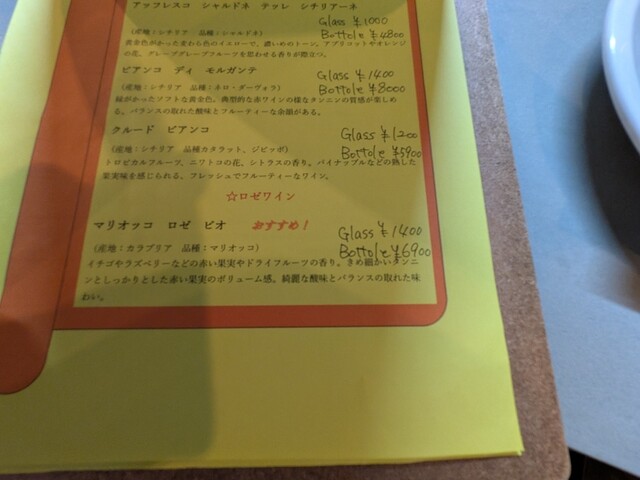 アッフレスコ シャルドネ テッレ シチリアーネ
Glass ¥1000
(産地:シチリア 品種:シャルドネ)
Bottole ¥4800
黄金色がかった麦わら色のイエローで、濃いめのトーン。アプリコットやオレンジ
の花、グレープグレープフルーツを思わせる香りが際立つ。
ビアンコ ディ モルガンテ
Glass ¥1400
(産地:シチリア 品種:ネロ・ダーヴォラ)
Bottole ¥8000
緑がかったソフトな黄金色。典型的な赤ワインの様なタンニンの質感が楽しめ
る。バランスの取れた酸味とフルーティーな余韻がある。
クルード ビアンコ
Glass ¥1200
(産地:シチリア 品種カタラット、ジビッボ)
Bottole ¥5900
トロピカルフルーツ、ニワトコの花、シトラスの香り。パイナップルなどの熟した
果実味を感じられる、フレッシュでフルーティーなワイン。
☆ロゼワイン
マリオッコ ロゼ ビオ おすすめ!
Glass ¥1400
(産地:カラブリア 品種:マリオッコ)
Bottole ¥6900
イチゴやラズベリーなどの赤い果実やドライフルーツの香り。きめ細かいタンニ
ンとしっかりとした赤い果実のボリューム感。綺麗な酸味とバランスの取れた味
わい。